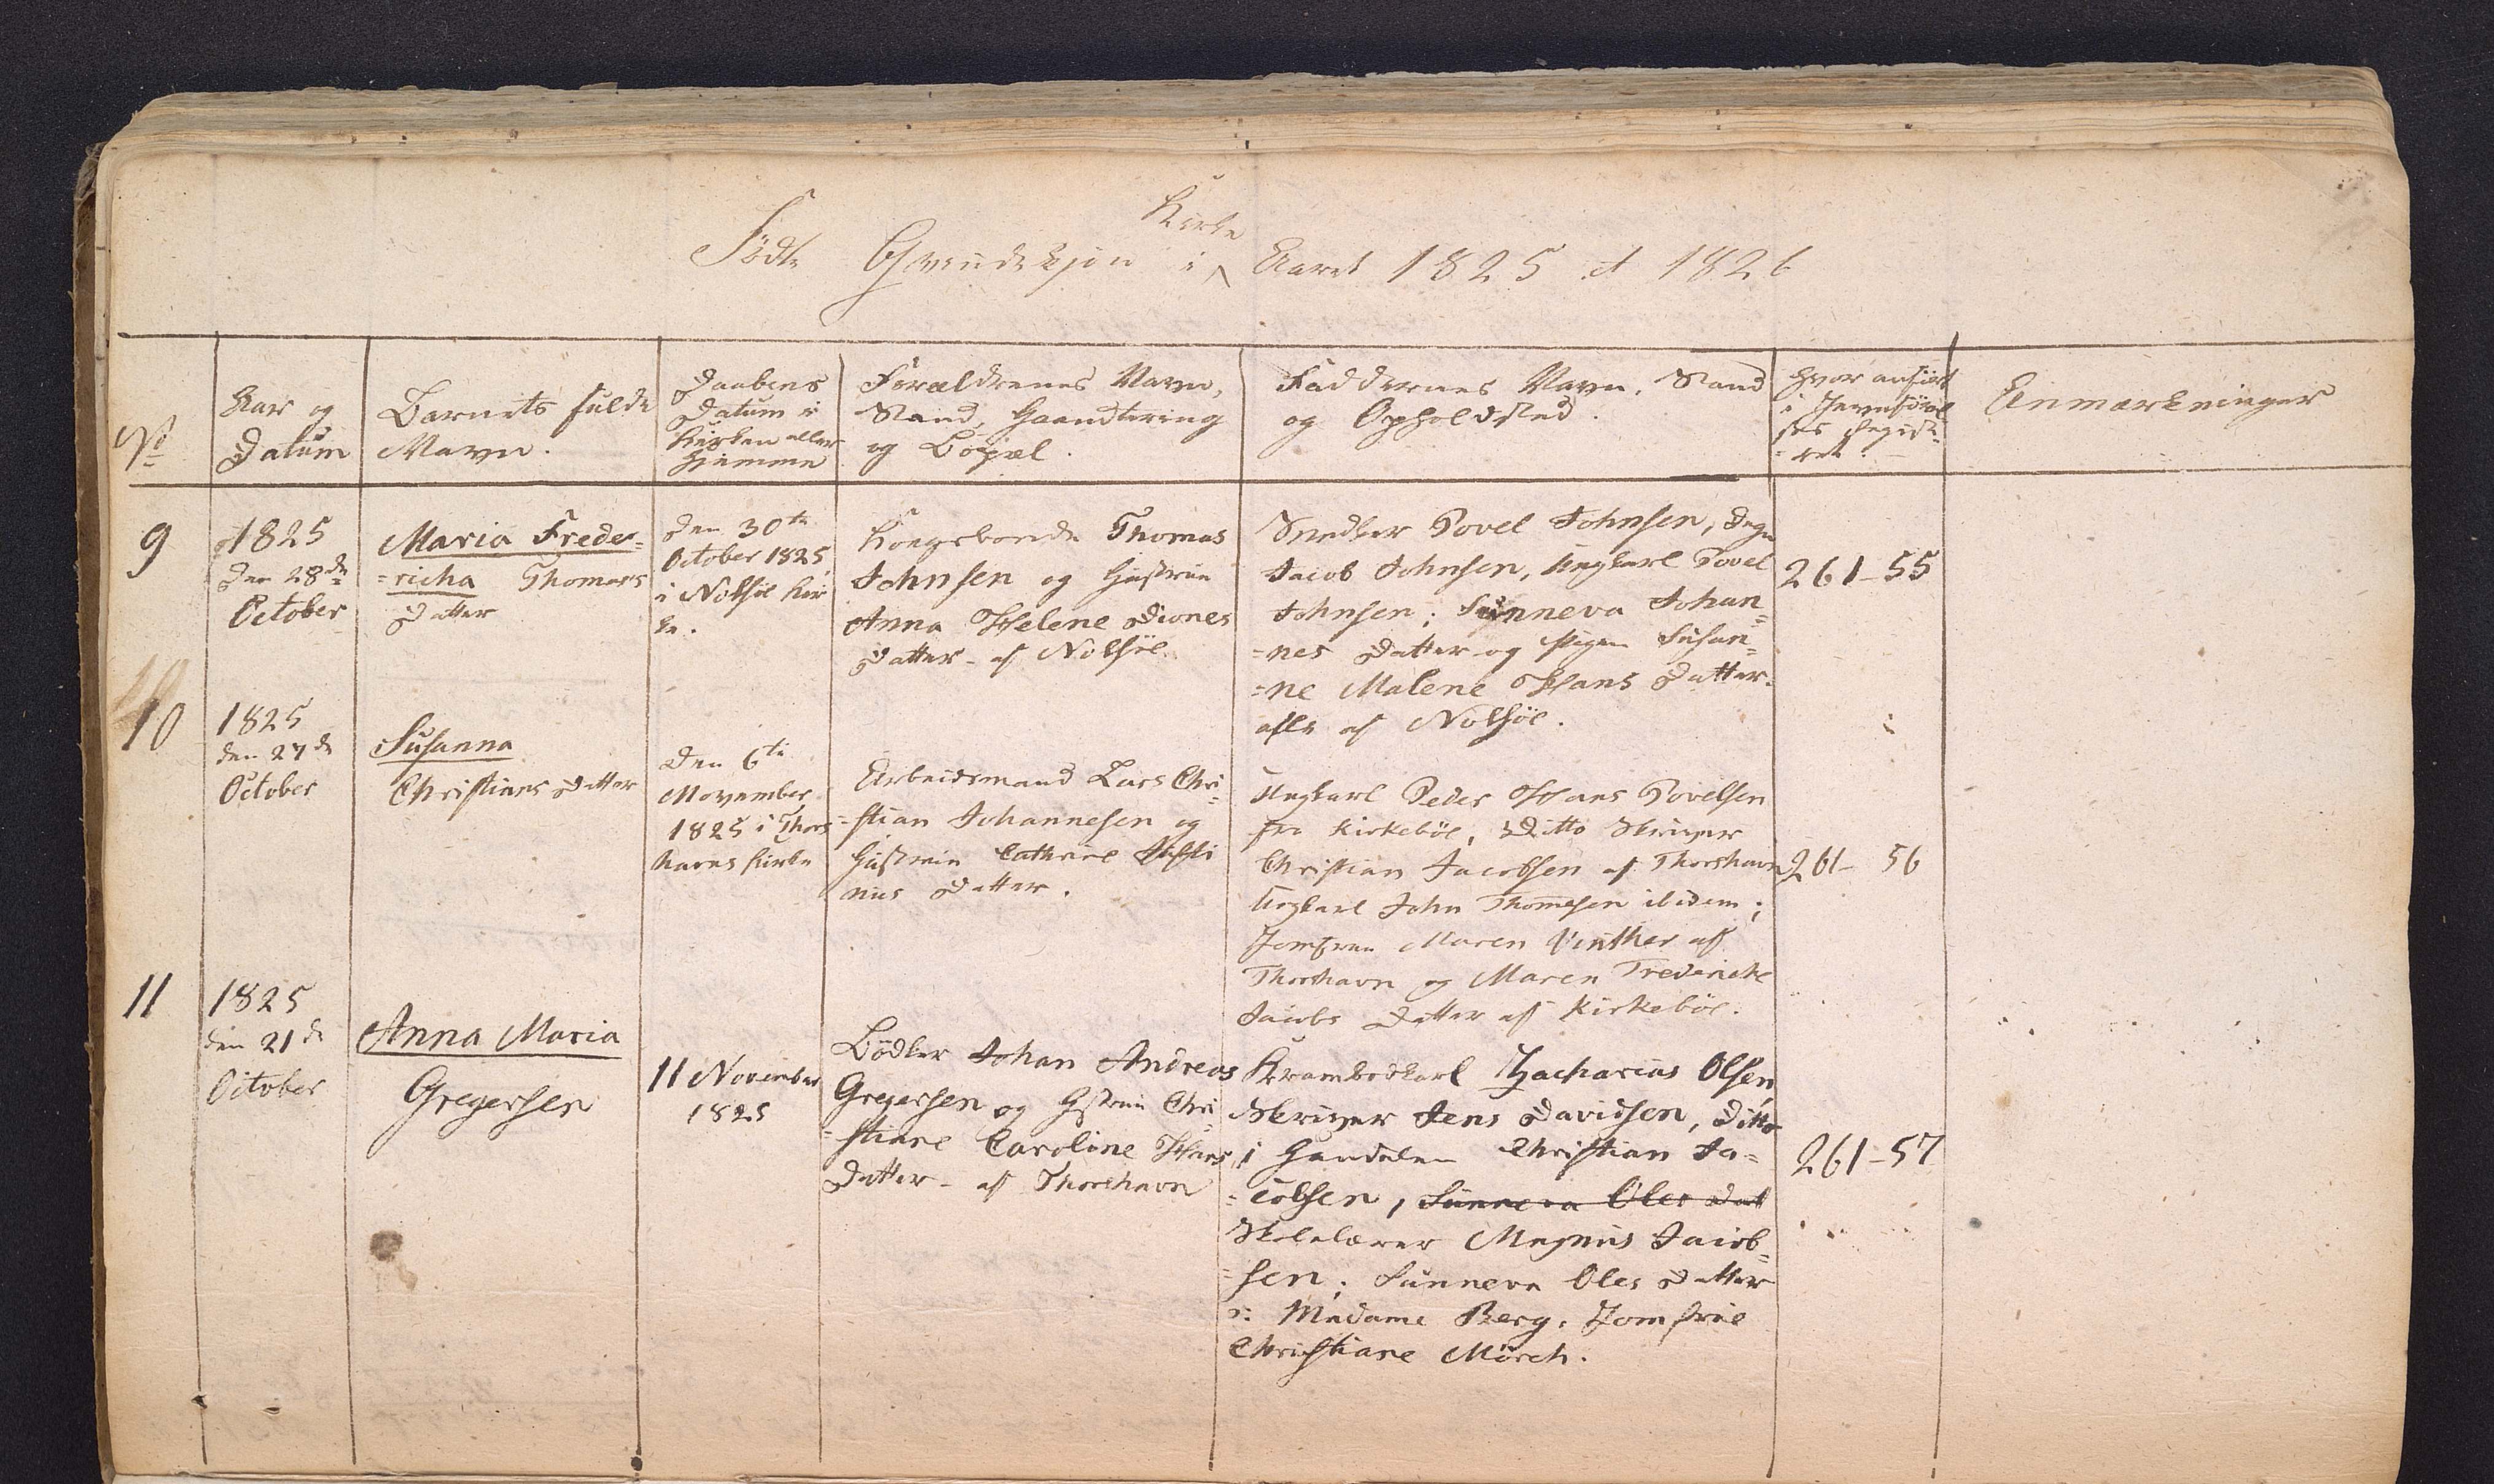 Kirke
Födte Qvindekjön i Aaret 1825 et 1826
No
Aar og
Datum
Barnets fulde
Navn.
Daabens
Datum i
Kirken eller
Hjemme
Forældrenes Navn,
Stand, Haandtering
og Bopæl.
Faddernes Navn, Stand
og Opholdsted.
Hvor anfört
i Jevnförel
ses Regist-
=ret.
Anmærkninger
9
1825
Den 28de
October
Maria Frede=
=richa Thomas
Datter
Den 30te
October 1825
i Nolsöe Kir
ke.
Kongsbonde Thomas
Johnsen og Hustrue
Anna Helene Diones
Datter - af Nolsöe.
Snedker Povel Johnsen, Degn
Jacob Johnsen, Ungkarl Povel
Johnsen; Sunneva Johan=
=nes Datter og Pigen Susan=
=ne Malene Hans Datter.
alle af Nolsöe.
261-55
10
1825
den 27de
October
Susanna
Christians Datter
Den 6te
November
1825 i Thors
havns Kirke
Arbeidsmand Lars Chri=
=stian Johannesen og
Hustrue Cathrine
nus Datter.
Ungkarl Peder Hans Povelsen
fra Kirkeböe, Ditto Skriver
Christian Jacobsen af Thorshavn
Ungkarl John Thomesen ibidem;
Jomfrue Maren Vinther af
Thorshavn og Maren Fredericke
Jacobs Datter af Kirkeböe.
261-56
11
1825
den 21de
October
Anna Maria
Gregersen
11 November
1825
Bödker Johan Andreas
Gregersen og Hstrue Chri=
=stiane Caroline Hans
Datter - af Thorshavn
Krambodkarl Zacharias Olsen,
Skriver Jens Davidsen, Ditto
i Handelen Christian Ja=
=cobsen, Sunneva Oles Dat
Skolelærer Magnus Jacob=
=sen; Sunneva Oles Datter
Madame Berg. Jomfrue
Christiane Mörch.
261-57